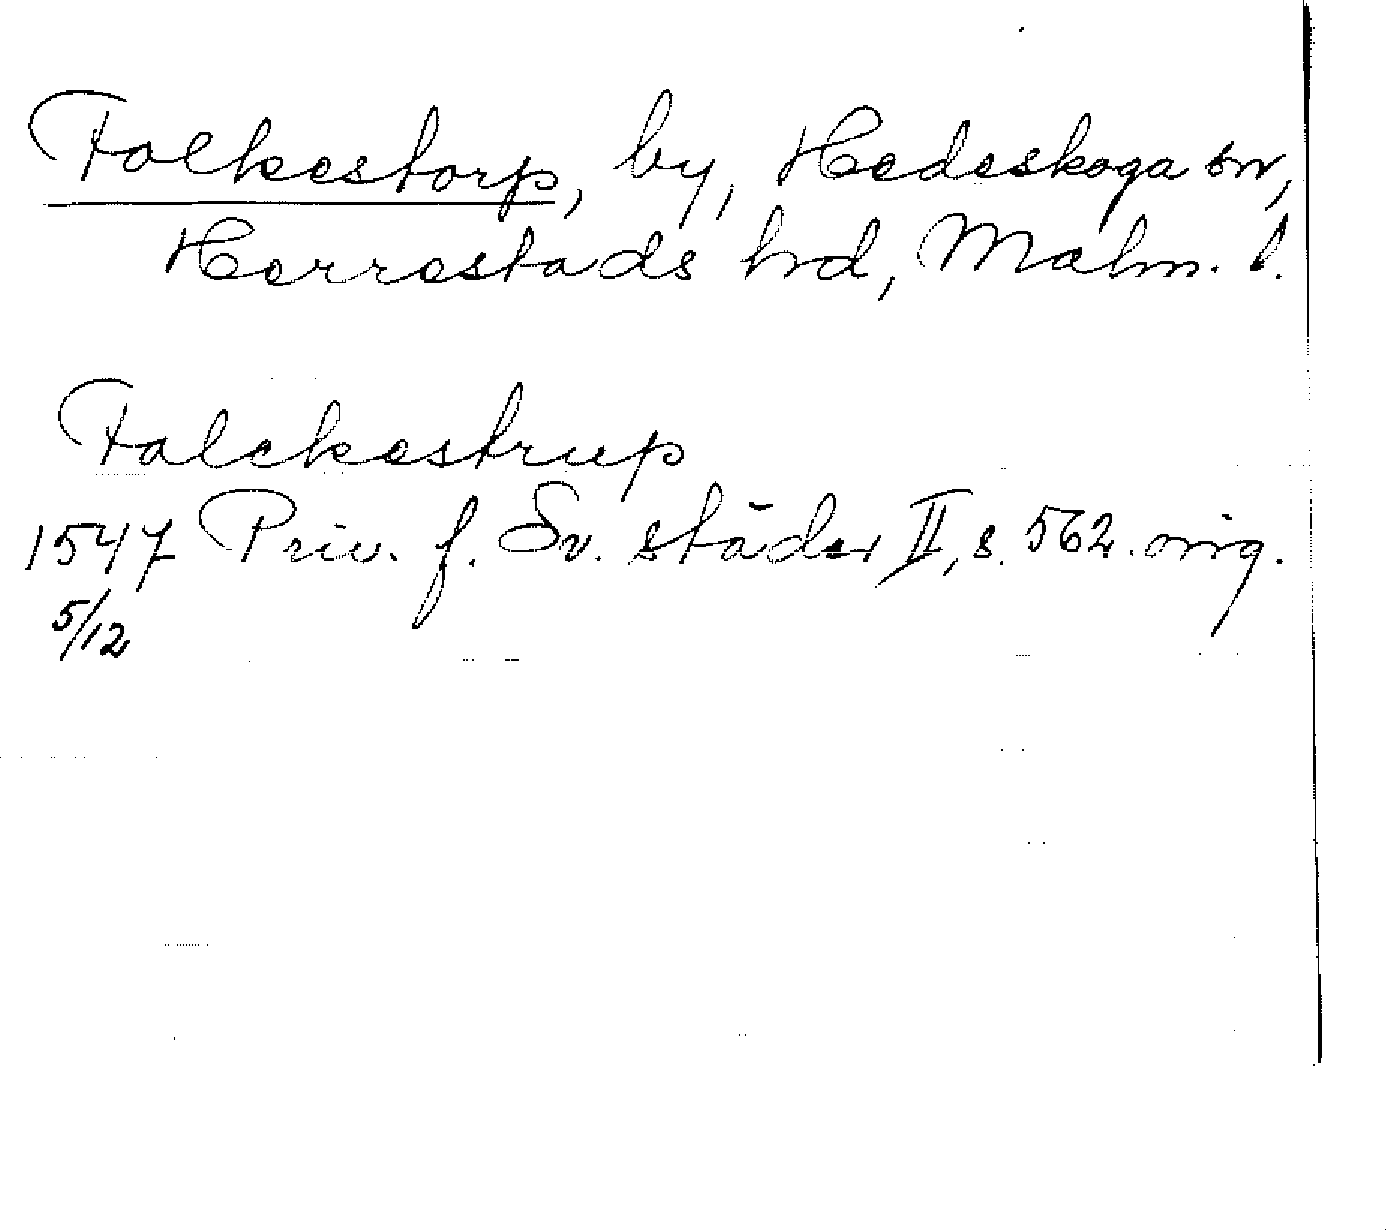 Folkestorp, by, Hedeskoga sn,
Herrestads hrd, Malm. l.
Falckestrup
1547 Priv. f. Sv. städer II, s. 562. orig.
5/12